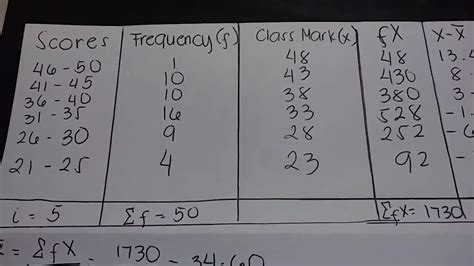 Scores Frequency (f) Class Mark (x) fX X-X̄
46 - 50 1 48 48 13.4
41 - 45 10 43 430 8
36 - 40 10 38 380 3
31 - 35 16 33 528 -1.
26 - 30 9 28 252 -6
21 - 25 4 23 92 -
i = 5 Σf = 50 ΣfX = 1730
= ΣfX 1730 - 34.60